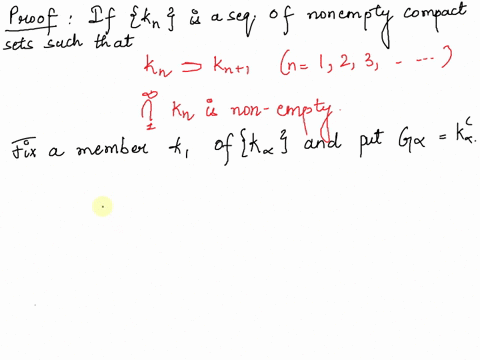 Proof : If {kn} is a seq. of nonempty compact
sets such that
kn ⊃ kn+1 (n= 1, 2, 3, - ----)
∞⋂1 kn is non-empty.
Fix a member k1 of {kα} and put Gα = kα^c.